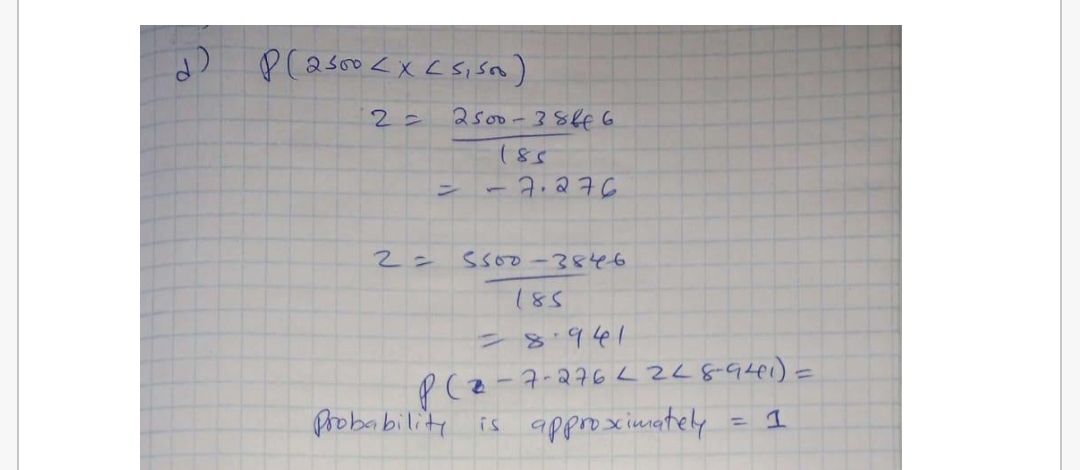 d) P(2500 < x < 5,500)
z = 2500 - 3846
185
= - 7.276
z = 5500 - 3846
185
= 8.941
P(z - 7.276 < z < 8.941) =
probability is approximately = 1